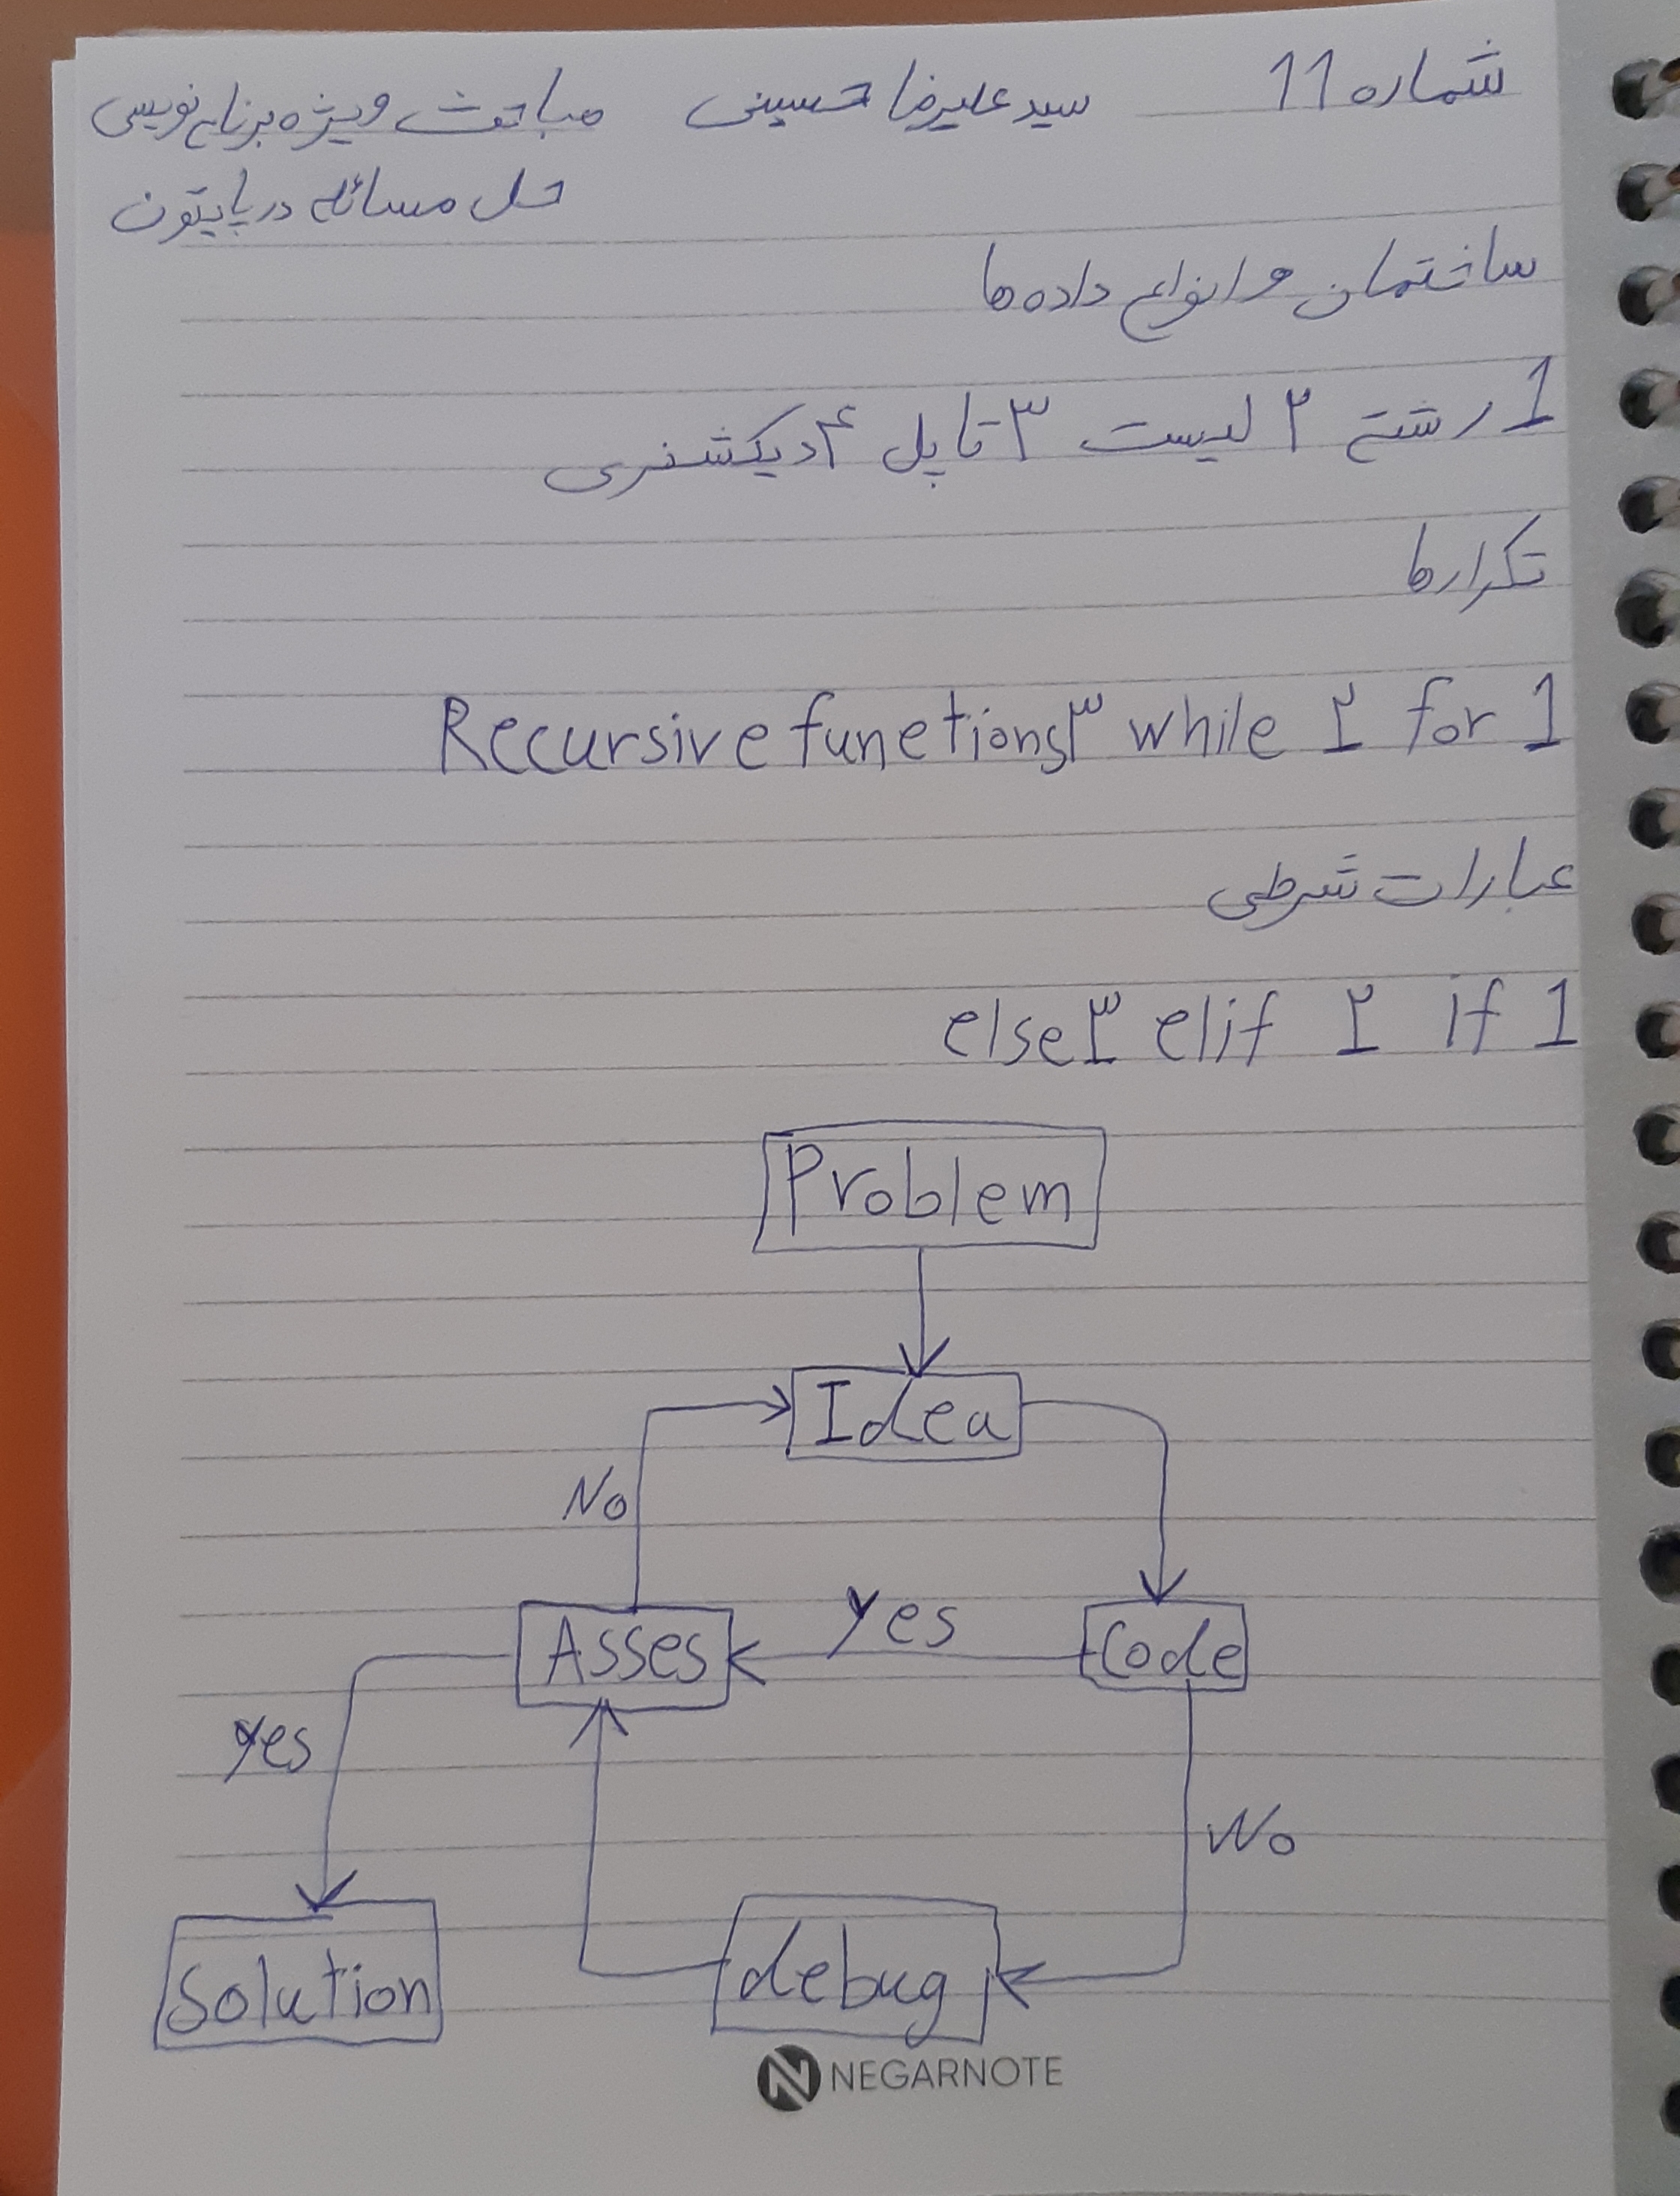 شماره 11 سید علیرضا حسینی مباحث ویژه برنامه نویسی
حل مسائله در پایتون
ساختمان و انواع داده ها
1 رشته ۲ لیست ۳ تاپل ۴ دیکشنری
تکرارها
1 for ۲ while ۳ Recursive functions
عبارات شرطی
1 if ۲ elif ۳ else
Problem
Idea
No
Yes
Asses
Code
Yes
No
Solution
debug
NEGARNOTE